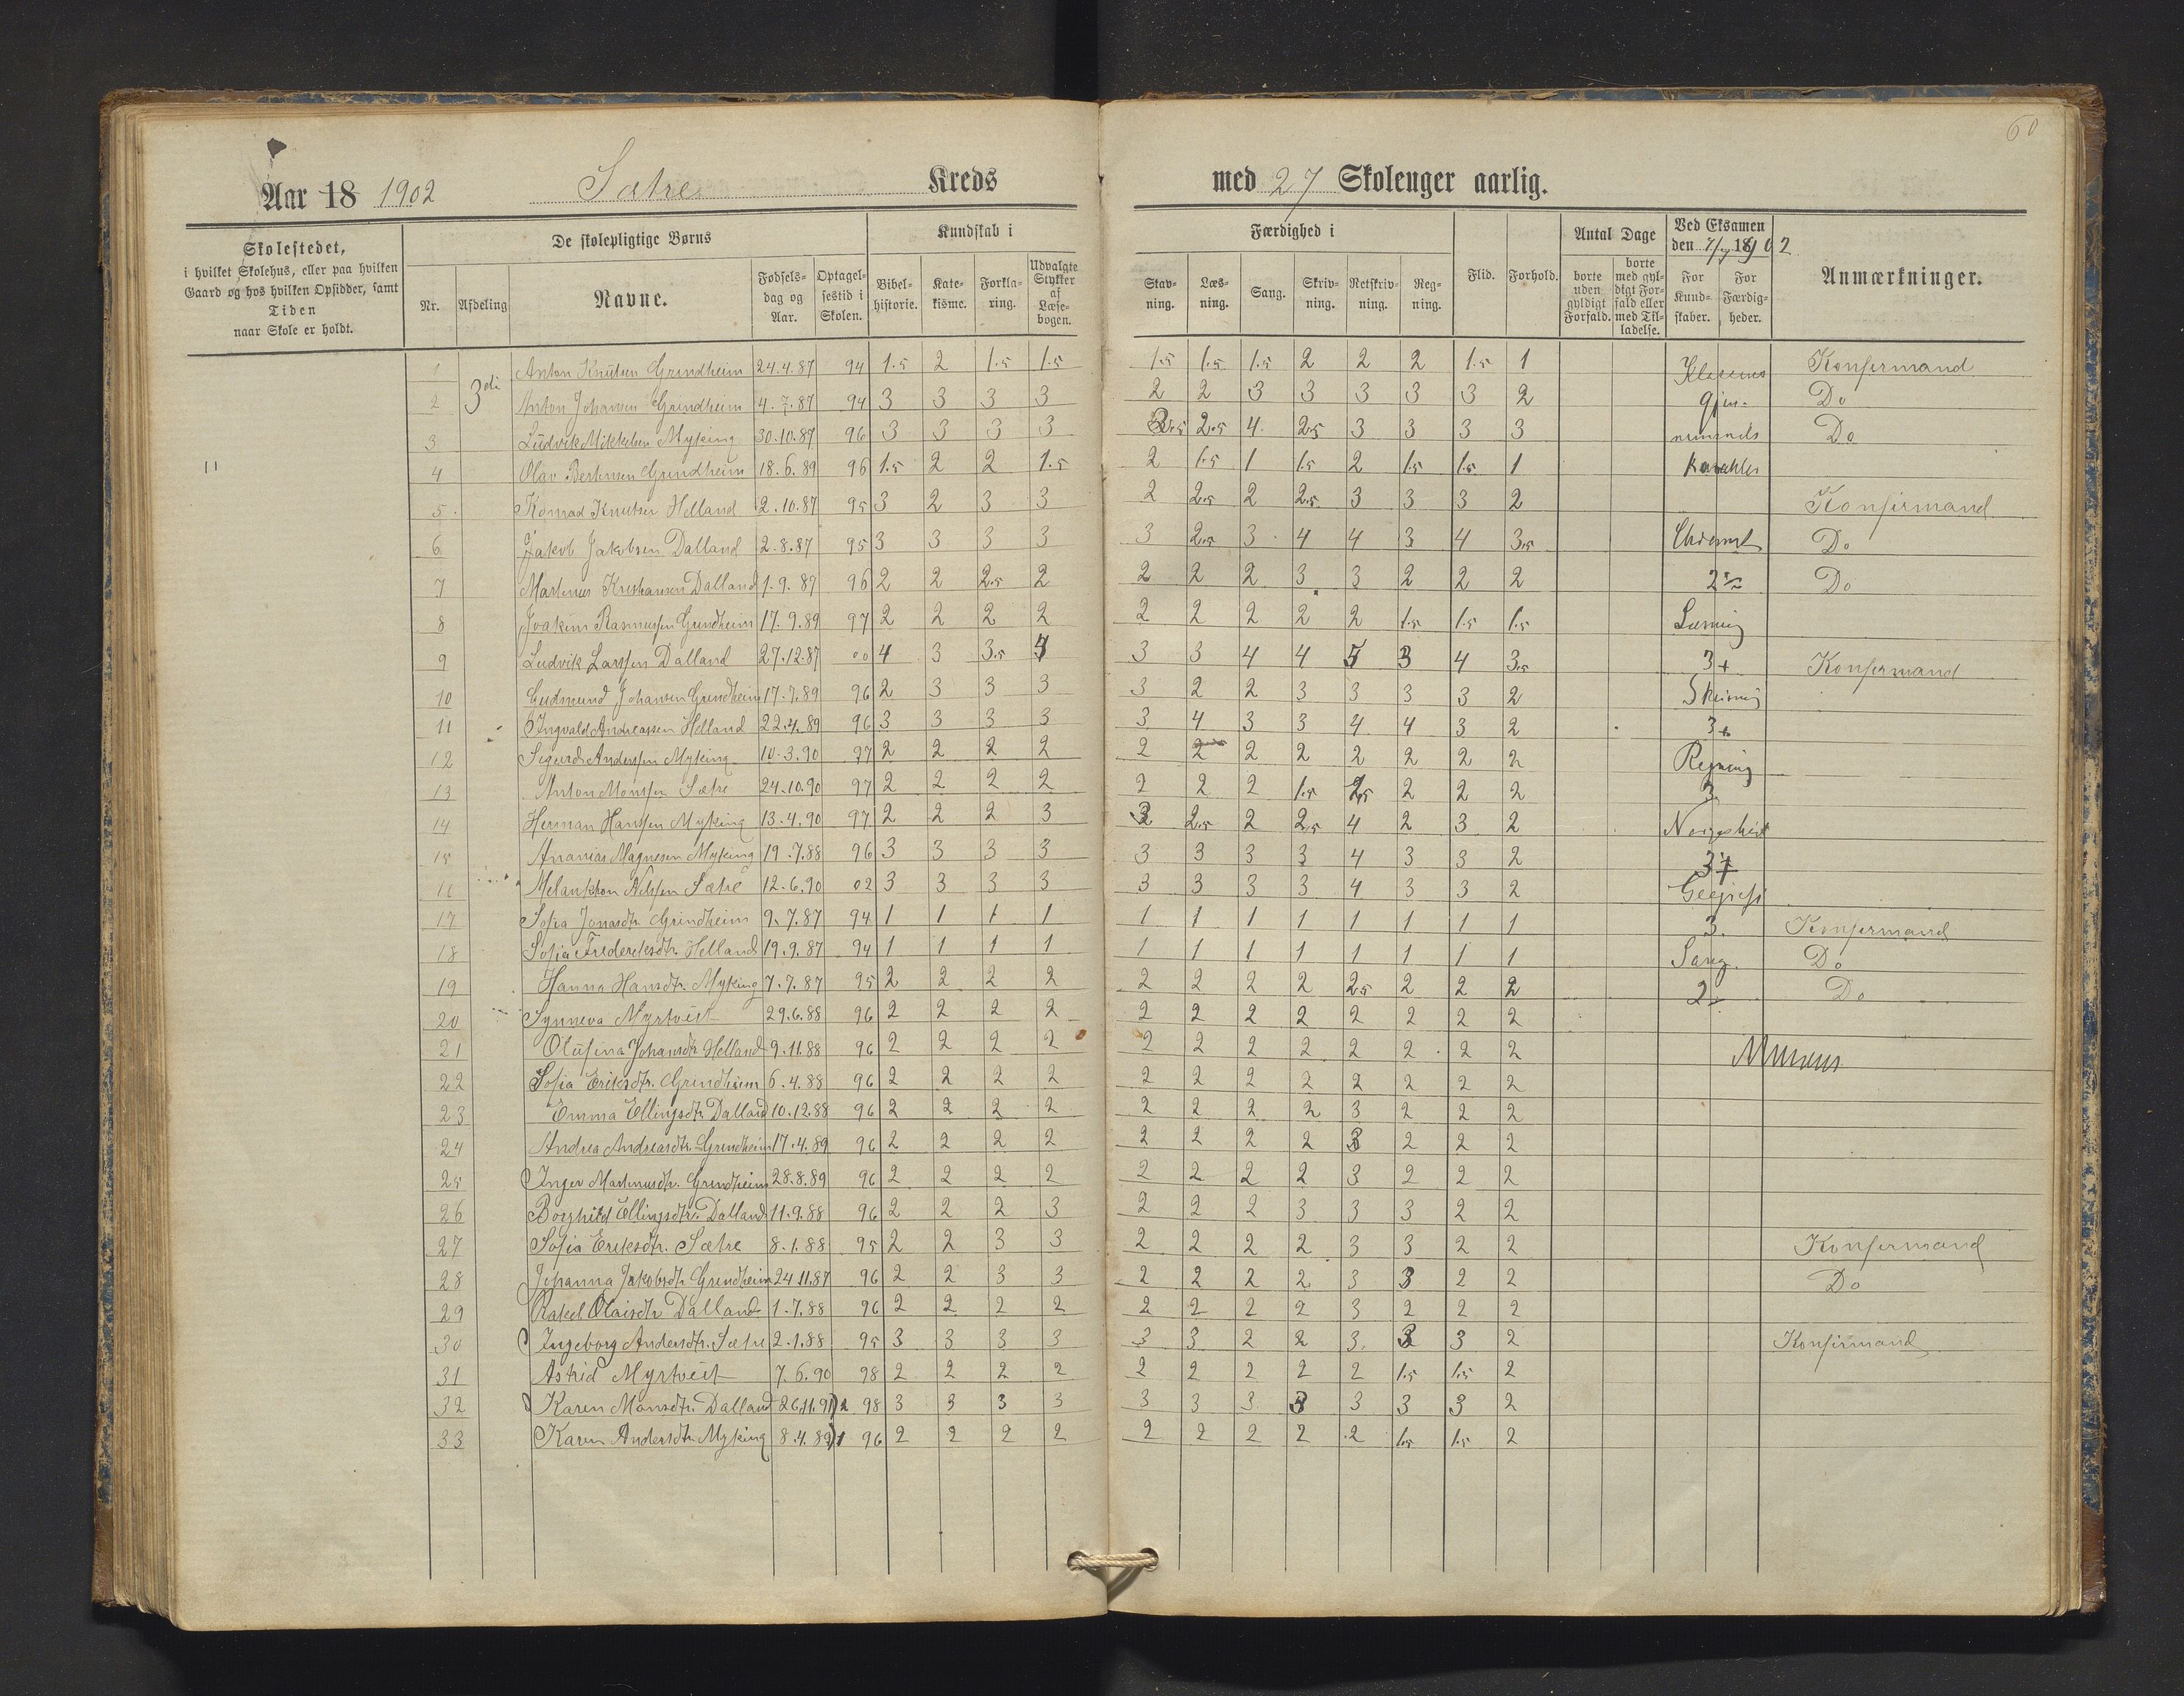 60
Aar 18 1902 Sætre Kreds med 27 Skoleuger aarlig.
Skolestedet, i hvilket Skolehus, eller paa hvilken Gaard og hos hvilken Opsidder, samt Tiden naar Skole er holdt.
De skolepligtige Børns
Nr. Afdeling Navne. Fødselsdag og Aar. Optagelsestid i Skolen.
Kundskab i
Bibelhistorie. Katekisme. Forklaring. Udvalgte Stykker af Læsebogen.
Færdighed i
Stavning. Læsning. Sang. Skrivning. Retskrivning. Regning.
Flid. Forhold.
Antal Dage
borte uden gyldigt Forfald. borte med gyldigt Forfald eller med Tilladelse.
Ved Eksamen den 7/7 1902
For Kundskaber. For Færdigheder.
Anmærkninger.
1 3die Anton Knutsen Grindheim 24.4.87 94 1.5 2 1.5 1.5 1.5 1.5 1.5 2 2 2 1.5 1 Klassens Konfermand
2 Anton Johansen Grindheim 4.7.87 94 3 3 3 3 2 2 3 3 3 3 3 2 Do
3 Ludvik Mikkelsen Myking 30.10.87 96 3 3 3 3 2.5 2.5 4 2.5 3 3 3 3 Do
4 Olav Bertinsen Grindheim 18.6.89 96 1.5 2 2 1.5 2 1.5 1 1.5 2 1.5 1.5 1
5 Konrad Knutsen Helland 2.10.87 95 3 2 3 3 2 2.5 2 2.5 3 3 3 2 Konfirmand
6 Jakob Jakobsen Dalland 2.8.87 95 3 3 3 3 3 2.5 3 4 4 3 4 3.5 Do
7 Martinus Kristiansen Dalland 1.9.87 96 2 2 2.5 2 2 2 2 3 3 2 2 2 Do
8 Joakim Rasmussen Grindheim 17.9.89 97 2 2 2 2 2 2 2 2 2 1.5 1.5 1.5 Læsning
9 Ludvik Larssen Dalland 27.12.87 00 4 3 3.5 4 3 3 4 4 5 3 4 3.5 3+ Konfermand
10 Gudmund Johansen Grindheim 17.7.89 96 2 3 3 3 3 2 2 3 3 3 3 2 Skrivning
11 Ingvald Andreassen Helland 22.4.89 96 3 3 3 3 3 4 3 3 4 4 3 2 3+
12 Sigurd Anderssen Myking 10.3.90 97 2 2 2 2 2 2 2 2 2 2 2 2 Regning
13 Anton Monssen Sætre 24.10.90 97 2 2 2 2 2 2 2 1.5 2.5 2 2 2 3
14 Herman Hanssen Myking 13.4.90 97 2 2 2 3 3 2.5 2 2.5 4 2 3 2 Norgeshist
15 Ananias Magnesen Myking 19.7.88 96 3 3 3 3 3 3 3 3 4 3 3 2 3+
16 Melankton Nilssen Sætre 12.6.90 02 3 3 3 3 3 3 3 3 4 3 3 2
17 Sofia Jonasdtr. Grindheim 9.7.87 94 1 1 1 1 1 1 1 1 1 1 1 1 3. Konfermand
18 Sofia Frederiksdtr. Helland 19.9.87 94 1 1 1 1 1 1 1 1 1 1 1 1 Sang. Do
19 Hanna Hansdtr. Myking 7.7.87 95 2 2 2 2 2 2 2 2 2.5 2 2 2 2 Do
20 Synneva Myrtveit 29.6.88 96 2 2 2 2 2 2 2 2 2 2 2 2
21 Olufina Johansdtr Helland 9.11.88 96 2 2 2 2 2 2 2 2 2 2 2 2
22 Sofia Eriksdtr. Grindheim 6.4.88 96 2 2 2 2 2 2 2 2 2 2 2 2
23 Emma Ellingsdtr. Dalland 10.12.88 96 2 2 2 2 2 2 2 2 3 2 2 2
24 Andrea Andreasdtr. Grindheim 17.4.89 96 2 2 2 2 2 2 2 2 3 2 2 2
25 Inger Martinusdtr. Grindheim 28.8.89 96 2 2 2 2 2 2 2 2 3 2 2 2
26 Borghild Ellingsdtr. Dalland 11.9.88 96 2 2 2 3 2 2 2 3 3 3 2 2
27 Sofia Eriksdtr. Sætre 8.1.88 95 2 2 3 3 2 2 2 2 3 3 2 2 Konfermand
28 Johanna Jakobsdtr Grindheim 24.11.87 96 2 2 3 3 2 2 2 2 3 3 2 2 Do
29 Rakel Olaisdtr Dalland 1.7.88 96 2 2 2 2 2 2 2 2 3 2 2 2
30 Ingeborg Andersdtr. Sætre 2.1.88 95 3 3 3 3 3 3 2 2 3 3 3 2 Konfirmand
31 Astrid Myrtveit 7.6.90 98 2 2 2 2 2 2 2 2 2 1.5 1.5 2
32 Karen Monsdtr. Dalland 26.11.91 98 3 3 3 3 3 3 3 3 3 3 3 2
33 Karen Andersdtr. Myking 8.4.89 96 2 2 2 2 2 2 2 2 2 1.5 1.5 2